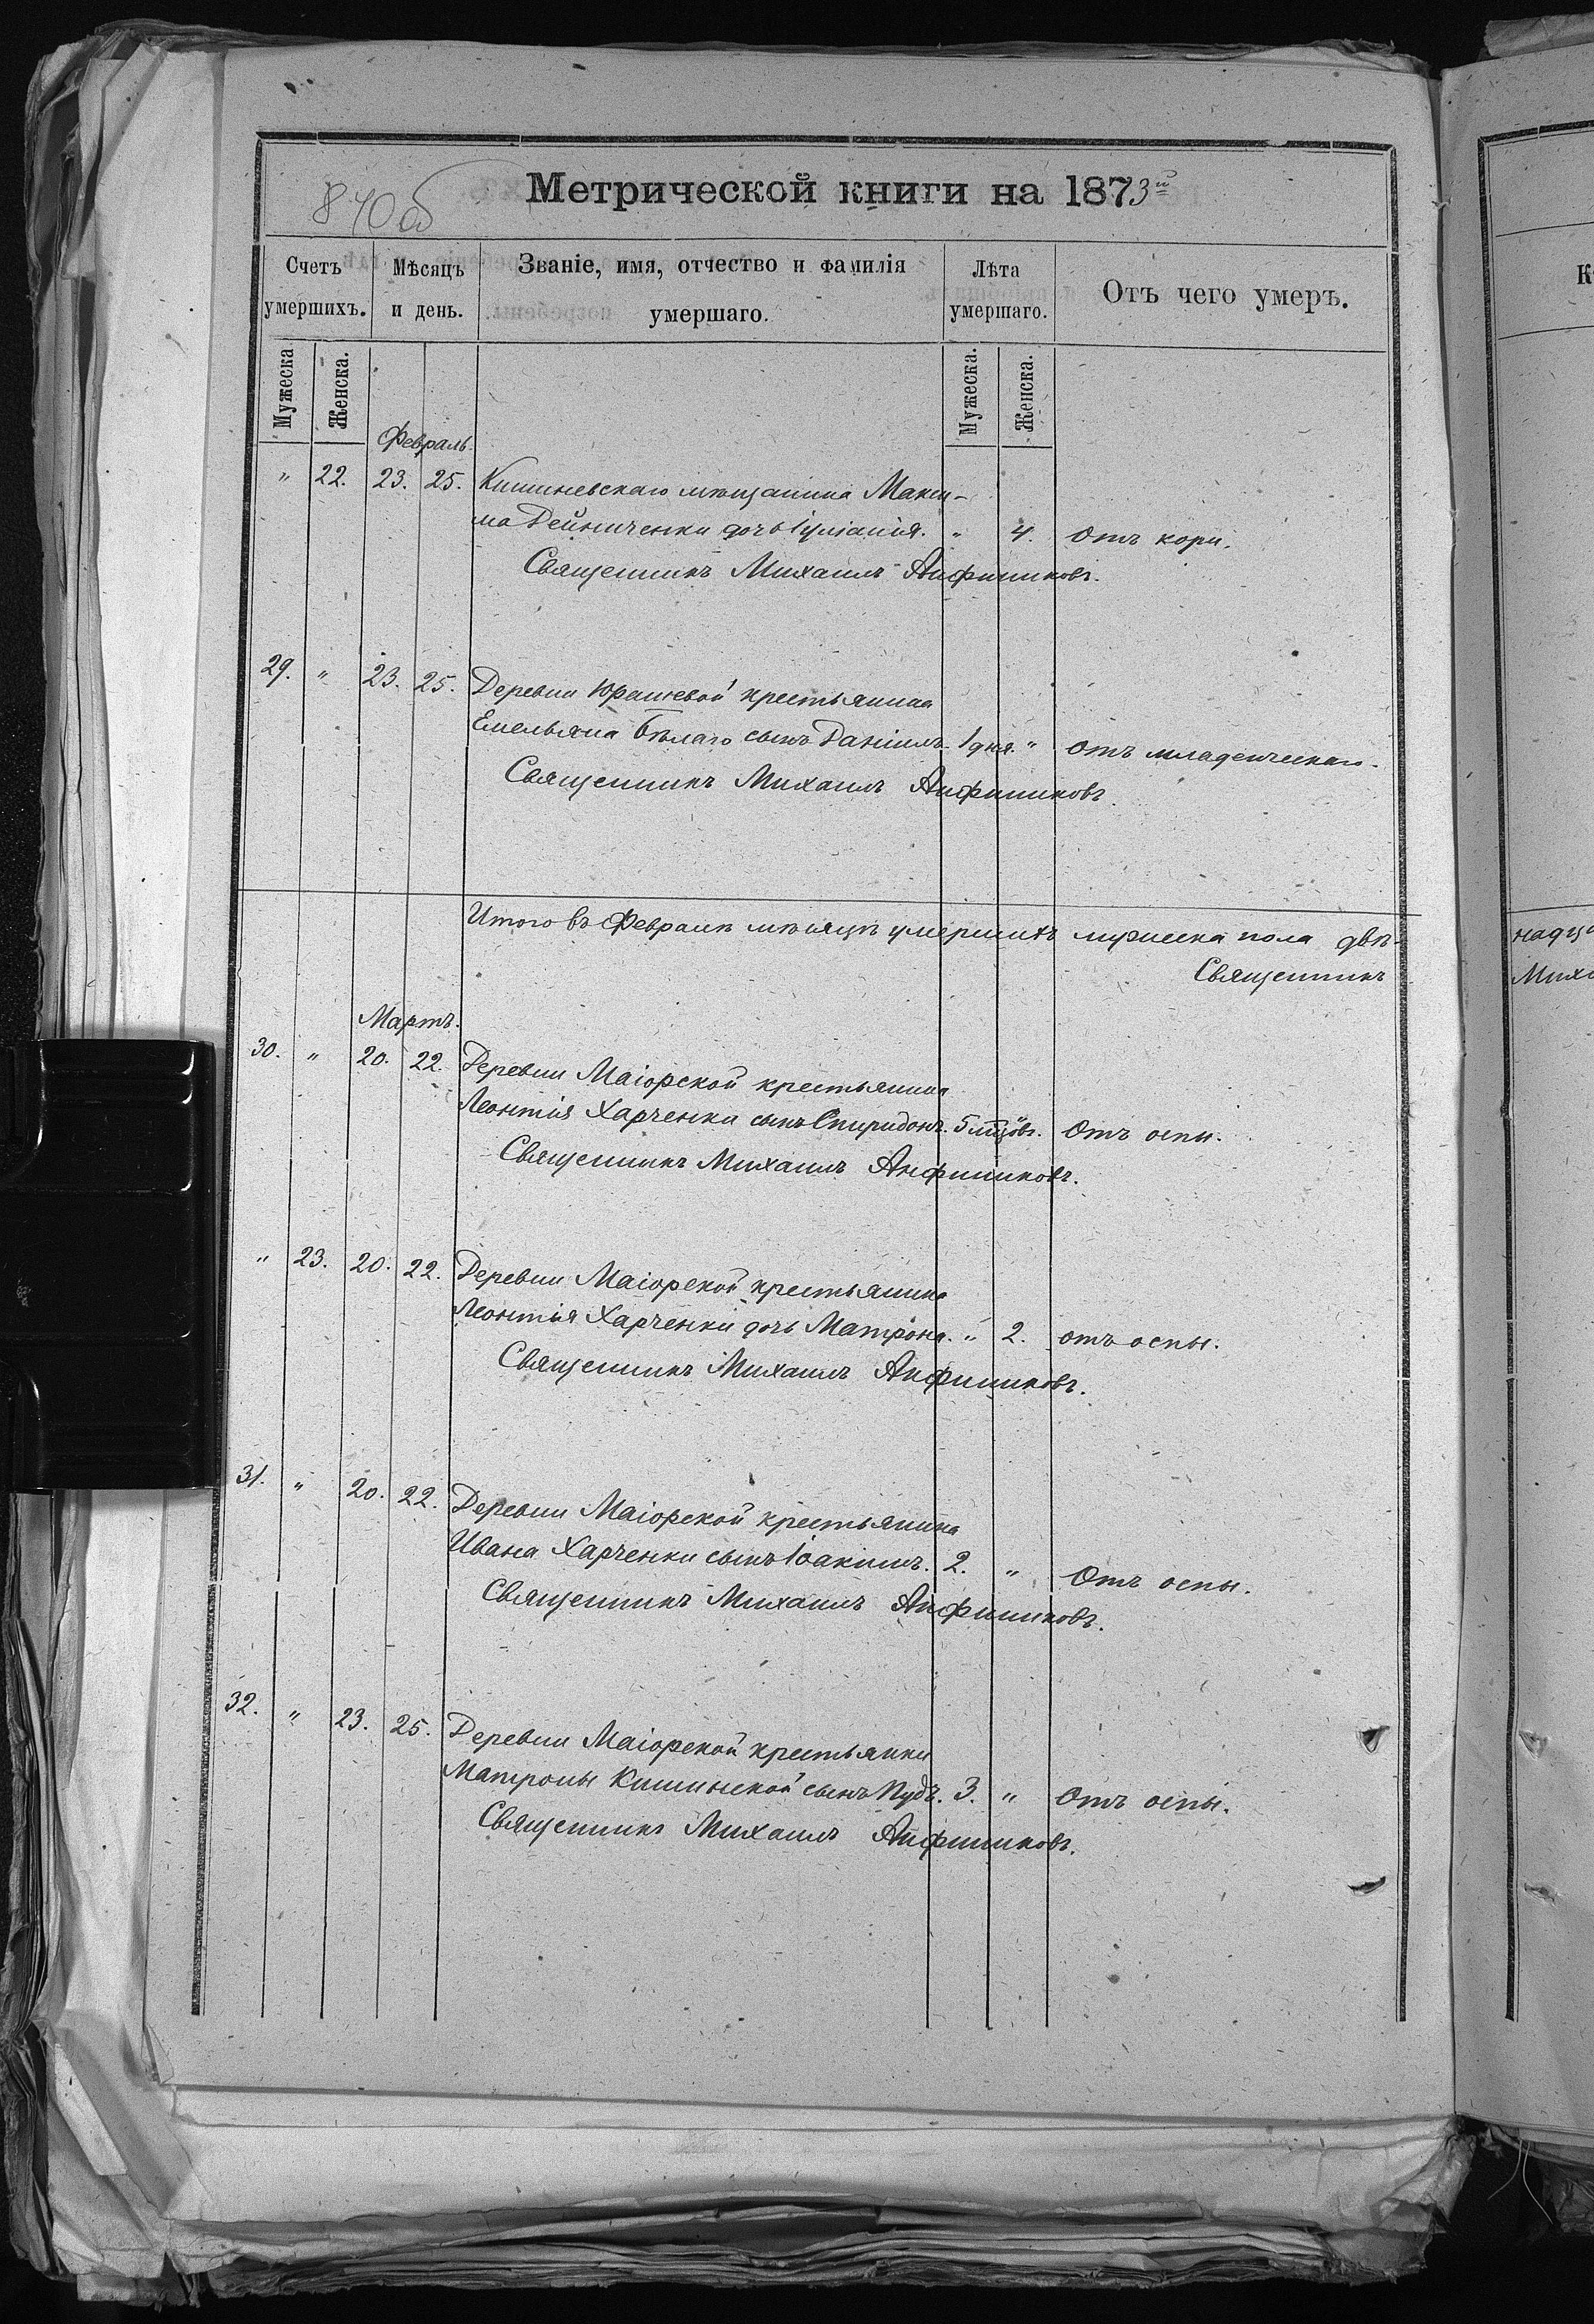 840об
Метрической книги на 1873й
Счетъ умершихъ.
Мѣсяцъ и день.
Званіе, имя, отчество и фамилія умершаго.
Лѣта умершаго.
Отъ чего умеръ.
Мужеска
Женска.
Мужеска.
Женска.
Февраль
" 22. 23. 25. Кишиневскаго мѣщанина Макси-
ма Дейниченки дочь Іуліанія. " 4. отъ кори.
Священникъ Михаилъ Анфиниковъ.
29. " 23. 25. Деревни Юрашевой крестьянина
Емельяна Бѣлаго сынъ Даніилъ. 1 дня. " отъ младенческаго.
Священникъ Михаилъ Анфиниковъ.
Итого въ Февралѣ мѣсяцѣ умершихъ мужеска пола двѣ-
Священникъ
Мартъ.
30. " 20. 22. Деревни Маіорской крестьянина
Леонтія Харченки сынъ Спиридонъ. 5 мцовъ. " Отъ оспы.
Священникъ Михаилъ Анфиниковъ.
" 23. 20. 22. Деревни Маіорской крестьянина
Леонтія Харченки дочь Матрона. " 2. отъ оспы.
Священникъ Михаилъ Анфиниковъ.
31. " 20. 22. Деревни Маіорской крестьянина
Ивана Харченки сынъ Іоакимъ. 2. " Отъ оспы.
Священникъ Михаилъ Анфиниковъ.
32. " 23. 25. Деревни Маіорской крестьянки
Матроны Кишинской сынъ Пудъ. 3. " Отъ оспы.
Священникъ Михаилъ Анфиниковъ.
К
надца
Миха